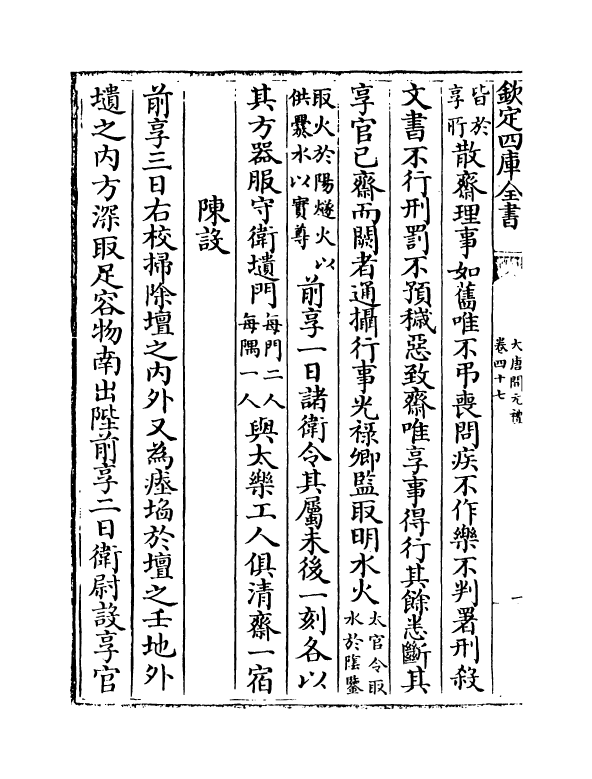 欽定四庫全書
大唐開元禮
卷四十七
一
皆於
享所散齋理事如舊唯不弔喪問疾不作樂不判署刑殺
文書不行刑罰不預穢惡致齋唯享事得行其餘悉斷其
享官已齋而闕者通攝行事光祿卿監取明水火太官令取水於陰鑒
取火於陽燧火以供爨水以實尊前享一日諸衛令其屬未後一刻各以
其方器服守衛壝門每門二人每隅一人與太樂工人俱清齋一宿
陳設
前享三日右校掃除壇之內外又為瘞埳於壇之壬地外
壝之內方深取足容物南出陛前享二日衛尉設享官